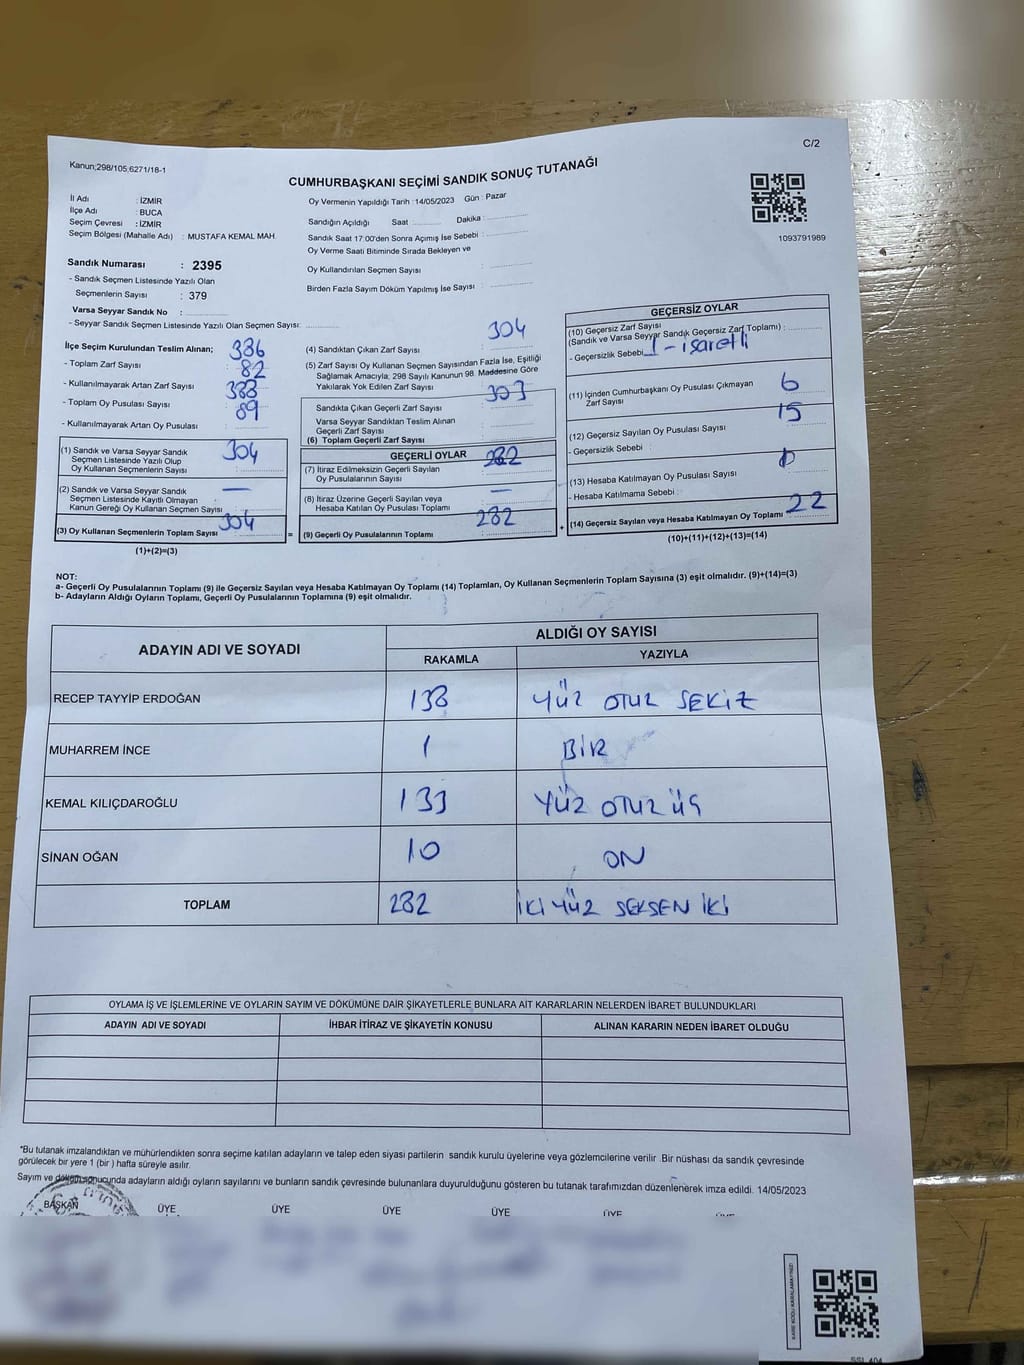 C/2
Kanun;298/105;6271/18-1
CUMHURBAŞKANI SEÇİMİ SANDIK SONUÇ TUTANAĞI
1093791989
İl Adı : İZMİR
İlçe Adı : BUCA
Seçim Çevresi : İZMİR
Seçim Bölgesi (Mahalle Adı) : MUSTAFA KEMAL MAH.
Sandık Numarası : 2395
- Sandık Seçmen Listesinde Yazılı Olan
Seçmenlerin Sayısı : 379
Varsa Seyyar Sandık No :
- Seyyar Sandık Seçmen Listesinde Yazılı Olan Seçmen Sayısı:
Oy Vermenin Yapıldığı Tarih :14/05/2023 Gün : Pazar
Sandığın Açıldığı Saat Dakika :
Sandık Saat 17:00'den Sonra Açımış İse Sebebi :
Oy Verme Saati Bitiminde Sırada Bekleyen ve
Oy Kullandırılan Seçmen Sayısı :
Birden Fazla Sayım Döküm Yapılmış İse Sayısı :
İlçe Seçim Kurulundan Teslim Alınan;
- Toplam Zarf Sayısı : 386
- Kullanılmayarak Artan Zarf Sayısı : 82
- Toplam Oy Pusulası Sayısı : 388
- Kullanılmayarak Artan Oy Pusulası : 89
(1) Sandık ve Varsa Seyyar Sandık
Seçmen Listesinde Yazılı Olup
Oy Kullanan Seçmenlerin Sayısı : 304
(2) Sandık ve Varsa Seyyar Sandık
Seçmen Listesinde Kayıtlı Olmayan
Kanun Gereği Oy Kullanan Seçmen Sayısı : —
(3) Oy Kullanan Seçmenlerin Toplam Sayısı : 304
(1)+(2)=(3)
(4) Sandıktan Çıkan Zarf Sayısı : 304
(5) Zarf Sayısı Oy Kullanan Seçmen Sayısından Fazla İse, Eşitliği
Sağlamak Amacıyla; 298 Sayılı Kanunun 98. Maddesine Göre
Yakılarak Yok Edilen Zarf Sayısı :
303
Sandıkta Çıkan Geçerli Zarf Sayısı :
Varsa Seyyar Sandıktan Teslim Alınan
Geçerli Zarf Sayısı :
(6) Toplam Geçerli Zarf Sayısı
GEÇERLİ OYLAR
(7) İtiraz Edilmeksizin Geçerli Sayılan
Oy Pusulasının Sayısı : 282
(8) İtiraz Üzerine Geçerli Sayılan veya
Hesaba Katılan Oy Pusulası Toplamı : —
(9) Geçerli Oy Pusulalarının Toplamı 282
GEÇERSİZ OYLAR
(10) Geçersiz Zarf Sayısı
(Sandık ve Varsa Seyyar Sandık Geçersiz Zarf Toplamı) :
- Geçersizlik Sebebi 1 - işaretli
(11) İçinden Cumhurbaşkanı Oy Pusulası Çıkmayan
Zarf Sayısı : 6
(12) Geçersiz Sayılan Oy Pusulası Sayısı : 15
- Geçersizlik Sebebi :
(13) Hesaba Katılmayan Oy Pusulası Sayısı :
- Hesaba Katılmama Sebebi :
(14) Geçersiz Sayılan veya Hesaba Katılmayan Oy Toplamı 22
(10)+(11)+(12)+(13)=(14)
NOT:
a- Geçerli Oy Pusulalarının Toplamı (9) ile Geçersiz Sayılan veya Hesaba Katılmayan Oy Toplamı (14) Toplamları, Oy Kullanan Seçmenlerin Toplam Sayısına (3) eşit olmalıdır. (9)+(14)=(3)
b- Adayların Aldığı Oyların Toplamı, Geçerli Oy Pusulalarının Toplamına (9) eşit olmalıdır.
ADAYIN ADI VE SOYADI ALDIĞI OY SAYISI
RAKAMLA YAZIYLA
RECEP TAYYİP ERDOĞAN 138 YÜZ OTUZ SEKİZ
MUHARREM İNCE 1 BİR
KEMAL KILIÇDAROĞLU 133 YÜZ OTUZ ÜÇ
SİNAN OĞAN 10 ON
TOPLAM 282 İKİ YÜZ SEKSEN İKİ
OYLAMA İŞ VE İŞLEMLERİNE VE OYLARIN SAYIM VE DÖKÜMÜNE DAİR ŞİKAYETLERLE BUNLARA AİT KARARLARIN NELERDEN İBARET BULUNDUKLARI
ADAYIN ADI VE SOYADI İHBAR İTİRAZ VE ŞİKAYETİN KONUSU ALINAN KARARIN NEDEN İBARET OLDUĞU
*Bu tutanak imzalandıktan ve mühürlendikten sonra seçime katılan adayların ve talep eden siyasi partilerin sandık kurulu üyelerine veya gözlemcilerine verilir. Bir nüshası da sandık çevresinde
görülecek bir yere 1 (bir) hafta süreyle asılır.
Sayım ve döküm sonucunda adayların aldığı oyların sayılarını ve bunların sandık çevresinde bulunanlara duyurulduğunu gösteren bu tutanak tarafımızdan düzenlenerek imza edildi. 14/05/2023
BAŞKAN ÜYE ÜYE ÜYE ÜYE ÜYE ÜYE
KARE KODU KARALAMAYINIZ!